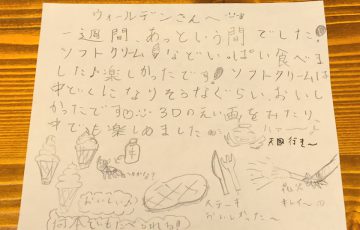 ウィールデンさんへ
一週間、あっという間でした。
ソフトクリームなどいっぱい食べま
した♪楽しかったです。ソフトクリームは
中どくになりそうなぐらいおいし
かったです。3Dのえい画をみたり、
中でも楽しめました
天国行き〜
おいしい
何本でもたべられる!
ステーキ
おいしかった〜
花火
キレイ〜